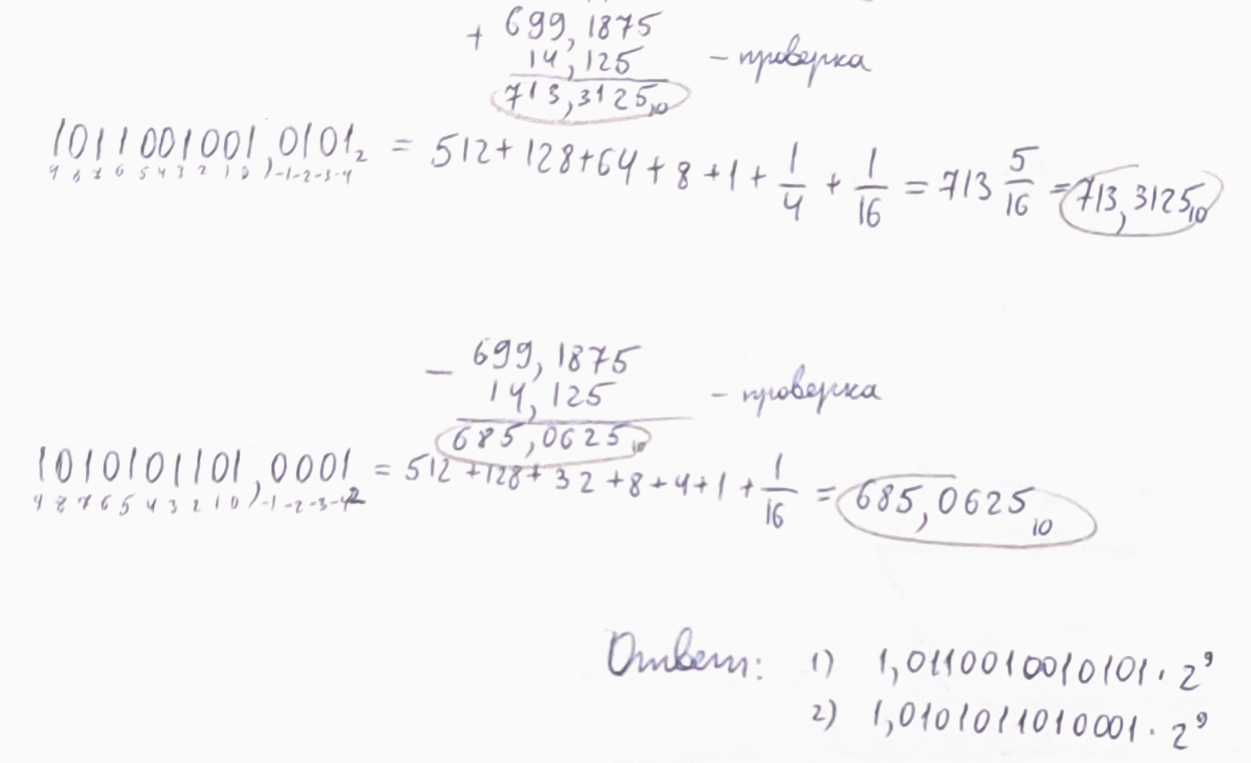 + 699,1875
14,125 – проверка
713,3125₁₀
1011001001,0101₂ = 512+128+64+8+1+1/4+1/16 = 713 5/16 = 713,3125₁₀
9 8 7 6 5 4 3 2 1 0 , -1 -2 -3 -4
– 699,1875
14,125 – проверка
685,0625₁₀
1010101101,0001₂ = 512+128+32+8+4+1+1/16 = 685,0625₁₀
9 8 7 6 5 4 3 2 1 0 , -1 -2 -3 -4
Ответ: 1) 1,0110010010101 · 2⁹
2) 1,0101011010001 · 2⁹